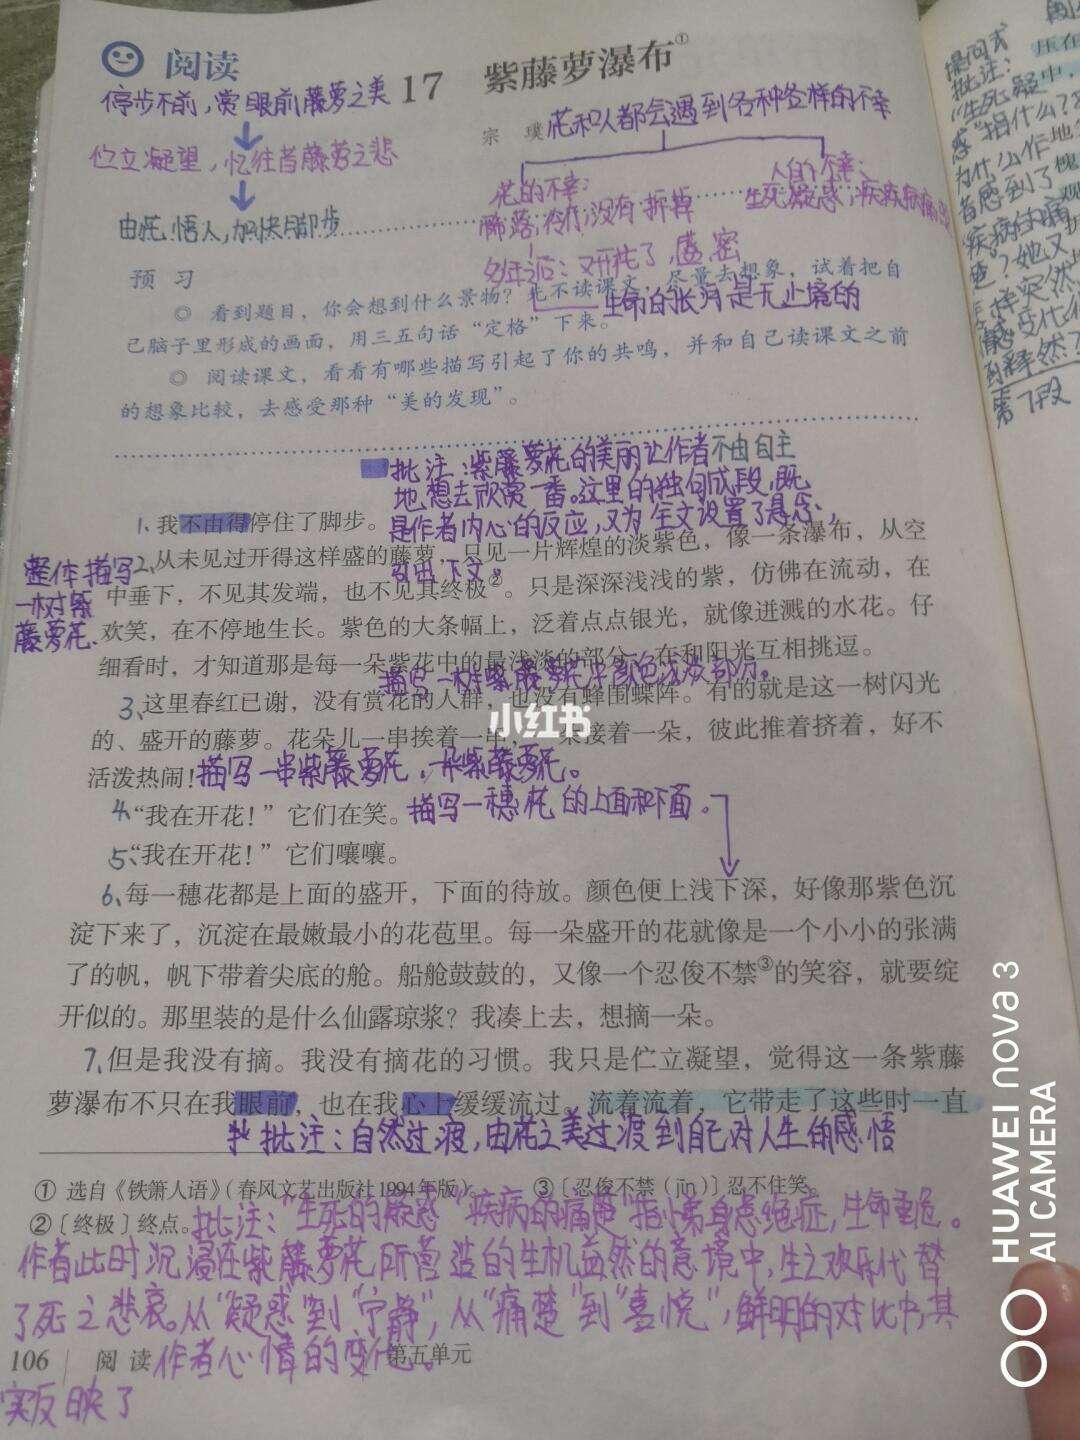 阅读
17 紫藤萝瀑布①
停步不前，赏眼前藤萝之美
宗璞
花和人都会遇到各种各样的不幸
伫立凝望，忆往昔藤萝之悲
花的不幸：
人的不幸：
稀落；伶仃；没有；拆掉
生死疑惑；疾病
由花悟人，加快脚步
多年之后：又开花了，盛，密
生命的长河是无止境的
预习
◎ 看到题目，你会想到什么景物？先不读课文，尽量去想象，试着把自
己脑子里形成的画面，用三五句话“定格”下来。
◎ 阅读课文，看看有哪些描写引起了你的共鸣，并和自己读课文之前
的想象比较，去感受那种“美的发现”。
批注：紫藤萝花的美丽让作者不由自主
地想去欣赏一番。这里的独句成段，既
是作者内心的反应，又为全文设置了悬念，
引出下文。
1、我不由得停住了脚步。
整体描写
一树紫
藤萝花
2、从未见过开得这样盛的藤萝，只见一片辉煌的淡紫色，像一条瀑布，从空
中垂下，不见其发端，也不见其终极②。只是深深浅浅的紫，仿佛在流动，在
欢笑，在不停地生长。紫色的大条幅上，泛着点点银光，就像迸溅的水花。仔
细看时，才知道那是每一朵紫花中的最浅淡的部分，在和阳光互相挑逗。
描写一树紫藤萝花中颜色浅淡部分。
3、这里春红已谢，没有赏花的人群，也没有蜂围蝶阵。有的就是这一树闪光
的、盛开的藤萝。花朵儿一串挨着一串，一朵接着一朵，彼此推着挤着，好不
活泼热闹！描写一串紫藤萝花，一朵紫藤萝花。
小红书
4、“我在开花！”它们在笑。描写一穗花的上面和下面。
5、“我在开花！”它们嚷嚷。
6、每一穗花都是上面的盛开，下面的待放。颜色便上浅下深，好像那紫色沉
淀下来了，沉淀在最嫩最小的花苞里。每一朵盛开的花就像是一个小小的张满
了的帆，帆下带着尖底的舱。船舱鼓鼓的，又像一个忍俊不禁③的笑容，就要绽
开似的。那里装的是什么仙露琼浆？我凑上去，想摘一朵。
7、但是我没有摘。我没有摘花的习惯。我只是伫立凝望，觉得这一条紫藤
萝瀑布不只在我眼前，也在我心上缓缓流过。流着流着，它带走了这些时一直
批注：自然过渡，由花之美过渡到自己对人生的感悟
① 选自《铁箫人语》（春风文艺出版社1994年版）。
③〔忍俊不禁（jīn）〕忍不住笑。
②〔终极〕终点。
批注：“生死的疑惑”“疾病的痛楚”指小弟身患绝症，生命垂危。
作者此时沉浸在紫藤萝花所营造的生机盎然的意境中，生之欢乐代替
了死之悲哀。从“疑惑”到“宁静”，从“痛楚”到“喜悦”，鲜明的对比中，其
实反映了
作者心情的变化。
106 阅读 第五单元
提问式
批注：
“生死疑
惑”指什么？
为什么作
者感到了
疾病的痛
楚？她又
怎样突然
释然？
第7段
压在
HUAWEI nova 3
AI CAMERA